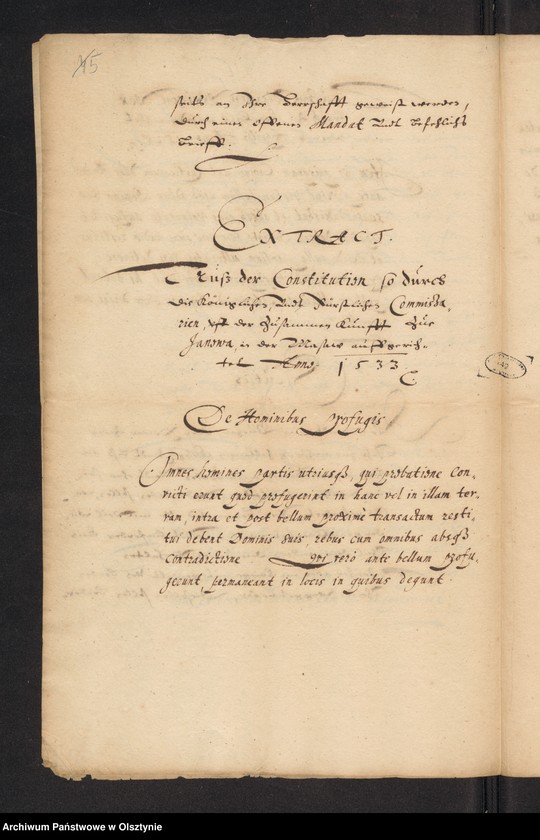 45
seits an Ihre Herrschafft geweist werden,
durch einen offenen Mandat undt befehlichs
brieff.
EXTRACT.
Auß der Constitution so durch
die Königlichen, undt Fürstlichen Commissa,
rien, uft der Zusammen Kunfft Zue
Janowa, in der Masaw auffgerich,
tet Anno, 1533
De Hominibus profugis
Omnes homines partis utriusq3, qui probatione con,
victi erunt quod profugerint in hanc vel in illam ter,
ram, intra et post bellum proximè transactum resti,
tui debent Dominis suis, rebus cum omnibus absq3
contradictione Qui verò ante bellum profu,
gerunt, permaneant in locis in quibus degunt.
Archiwum Państwowe w Olsztynie